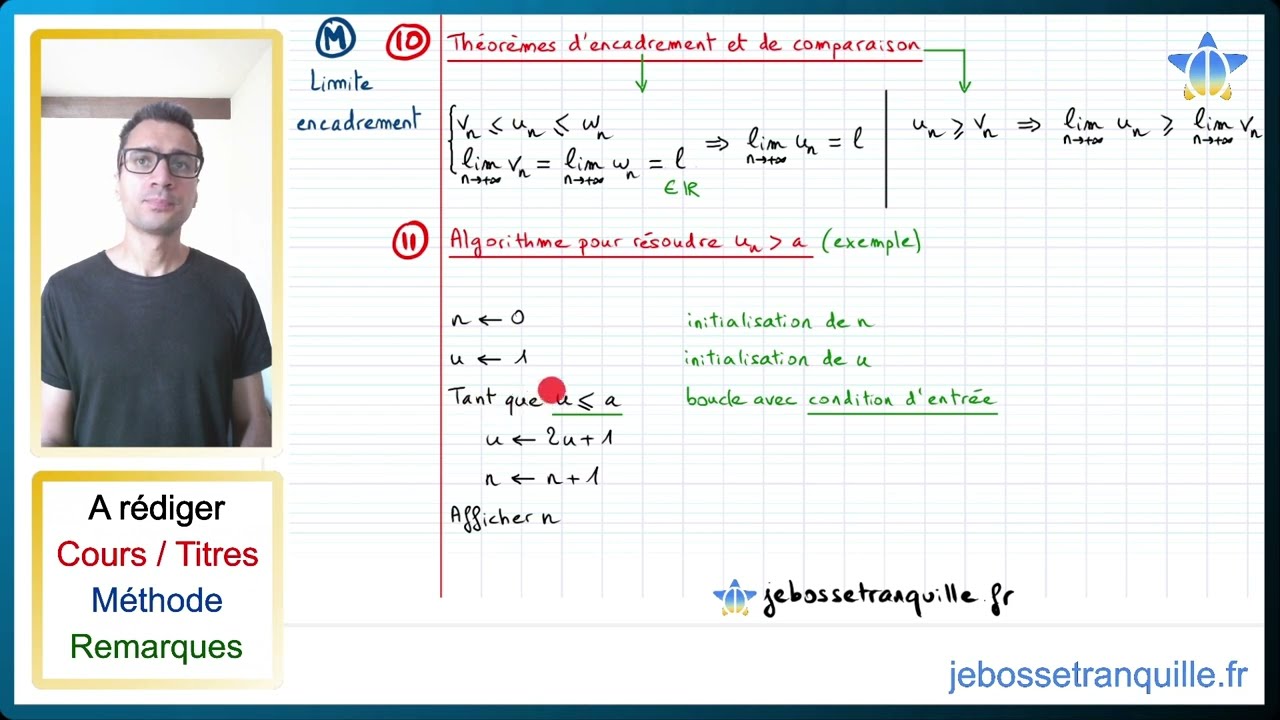 M
Limite
encadrement
10 Théorèmes d'encadrement et de comparaison
vₙ ⩽ uₙ ⩽ wₙ
lim vₙ = lim wₙ = l ⇒ lim uₙ = l
n→+∞ n→+∞ n→+∞
∈ ℝ
uₙ ⩾ vₙ ⇒ lim uₙ ⩾ lim vₙ
n→+∞ n→+∞
11 Algorithme pour résoudre uₙ > a (exemple)
n ← 0 initialisation de n
u ← 1 initialisation de u
Tant que u ⩽ a boucle avec condition d'entrée
u ← 2u+1
n ← n+1
Afficher n
jebossetranquille.fr
A rédiger
Cours / Titres
Méthode
Remarques
jebossetranquille.fr